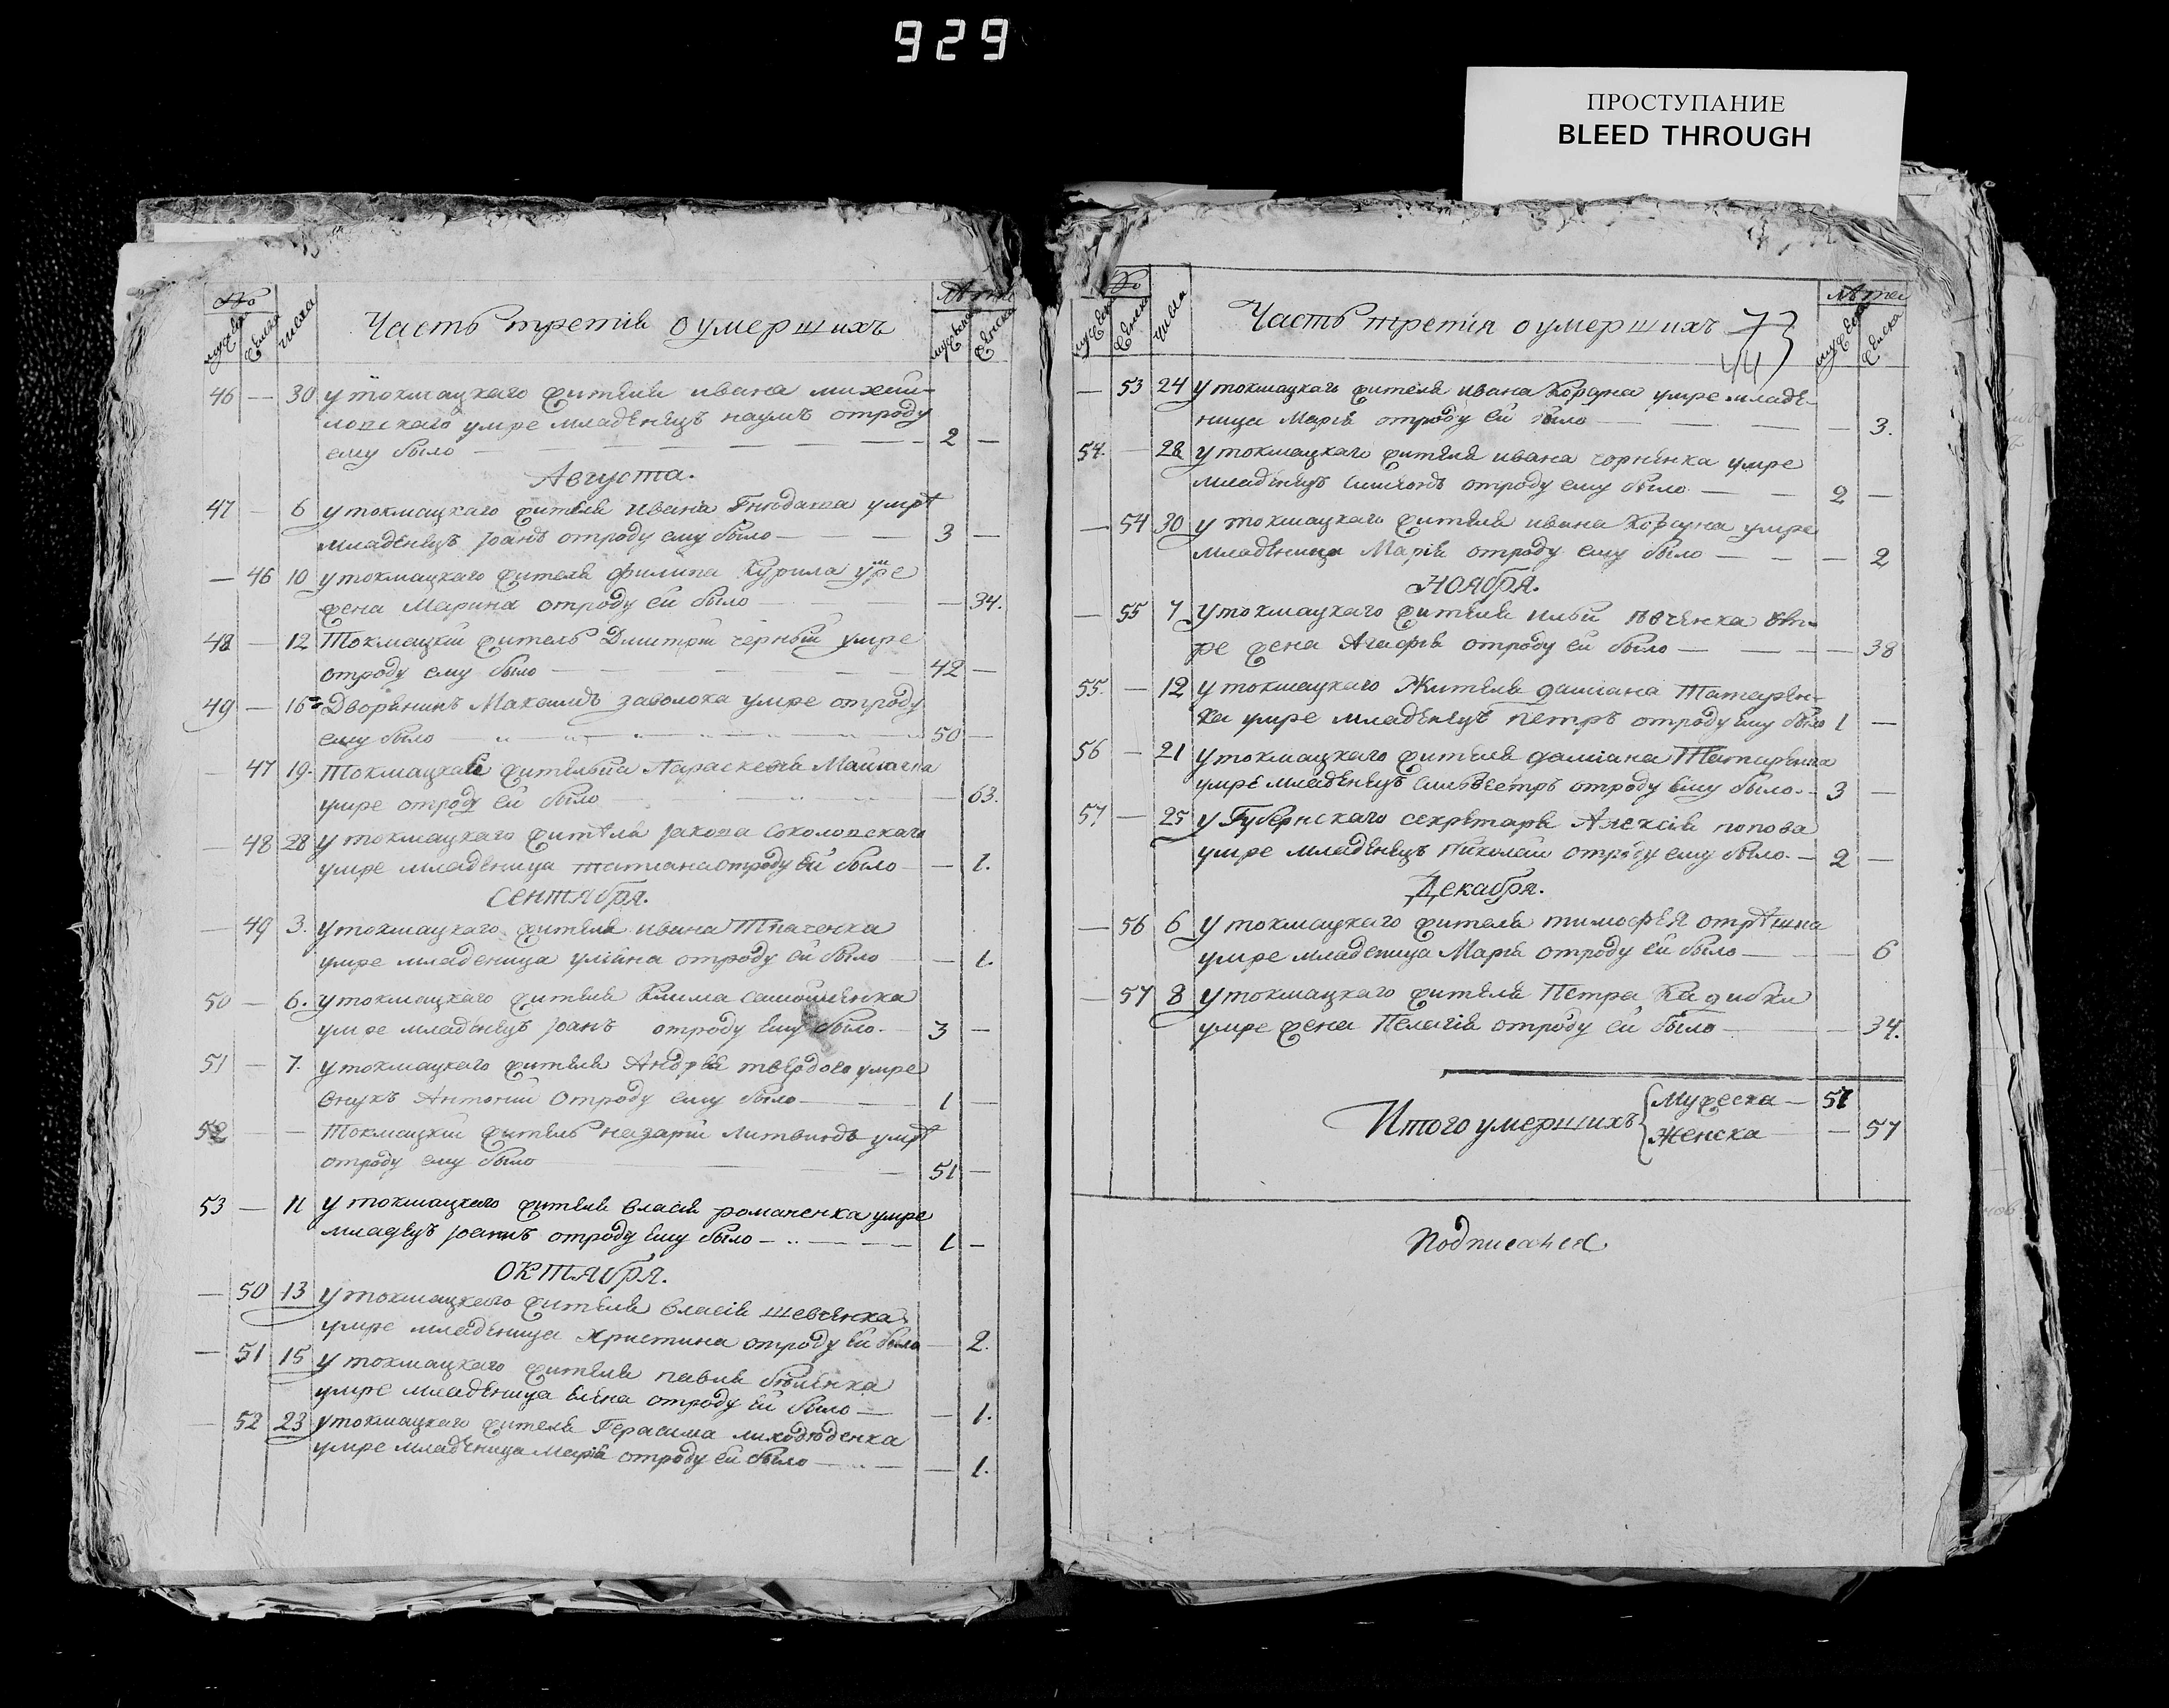 929
ПРОСТУПАНИЕ
BLEED THROUGH
№ мужеска женска числа Часть третія о умершихъ лѣта мужеска женска
46 — 30 у токмацкаго жителя ивана михай-
ловскаго умре младенецъ наумъ отроду
ему было — 2 —
Августа.
47 — 6 у токмацкаго жителя ивана умрѣ
младенецъ іоанъ отроду ему было — 3 —
— 46 10 у токмацкаго жителя филипа Курила умре
жена Марина отроду ей было — 34.
48 — 12 Токмацкій житель Дмитрій черный умре
отроду ему было — 42 —
49 — 16 Дворянинъ Максимъ заволока умре отроду
ему было — 50 —
— 47 19. Токмацкая жителька Параскевія
умре отроду ей было — 63.
— 48 28 у токмацкаго жителя іакова соколовскаго
умре младеница татиана отроду ей было — 1.
Сентября.
— 49 3. у токмацкаго жителя ивана Ткаченка
умре младеница уліяна отроду ей было — 1.
50 — 6. у токмацкаго жителя Клима самойленка
умре младенецъ іоанъ отроду ему было. 3 —
51 — 7. у токмацкаго жителя Андрея твердого умре
внукъ Антоній отроду ему было — 1 —
52 — — Токмацкій житель назарій литвинъ умрѣ
отроду ему было — 51 —
53 — 11 у токмацкаго жителя власія романенка умре
младецъ іоанъ отроду ему было — 1 —
Октября.
— 50 13 у токмацкаго жителя власія шевченка
умре младеница Христина отроду ей было — 2.
— 51 15 у токмацкаго жителя павла
умре младеница елена отроду ей было — 1.
— 52 23 у токмацкаго жителя Герасима
умре младеница Марія отроду ей было — 1.
№ мужеска женска числа Часть третія о умершихъ 73 лѣта мужеска женска
44
— 53 24 у токмацкаго жителя ивана Коржна умре младе-
ница Марія отроду ей было — 3.
54. — 28 у токмацкаго жителя ивана чорненка умре
младенецъ симеонъ отроду ему было — 2 —
— 54 30 у токмацкаго жителя ивана Коржна умре
младеница Марія отроду ему было — 2
Ноября.
— 55 7 у токмацкаго жителя ильи
ре жена Агафія отроду ей было — 38
55. — 12 у токмацкаго Жителя даміана Татарен-
ка умре младенецъ петръ отроду ему было 1 —
56 — 21 у токмацкаго жителя даміана Татаренка
умре младенецъ силвестръ отроду ему было. 3 —
57 — 25 у Губернскаго секретаря Алексія попова
умре младенецъ Николай отроду ему было. — 2 —
Декабря.
— 56 6 у токмацкаго жителя тимофея отрѣшка
умре младеница Марія отроду ей было — 6
— 57 8 у токмацкаго жителя Петра
умре жена Пелагія отроду ей было — 34.
Итого умершихъ { Мужеска — 57
Женска — 57
Подписался